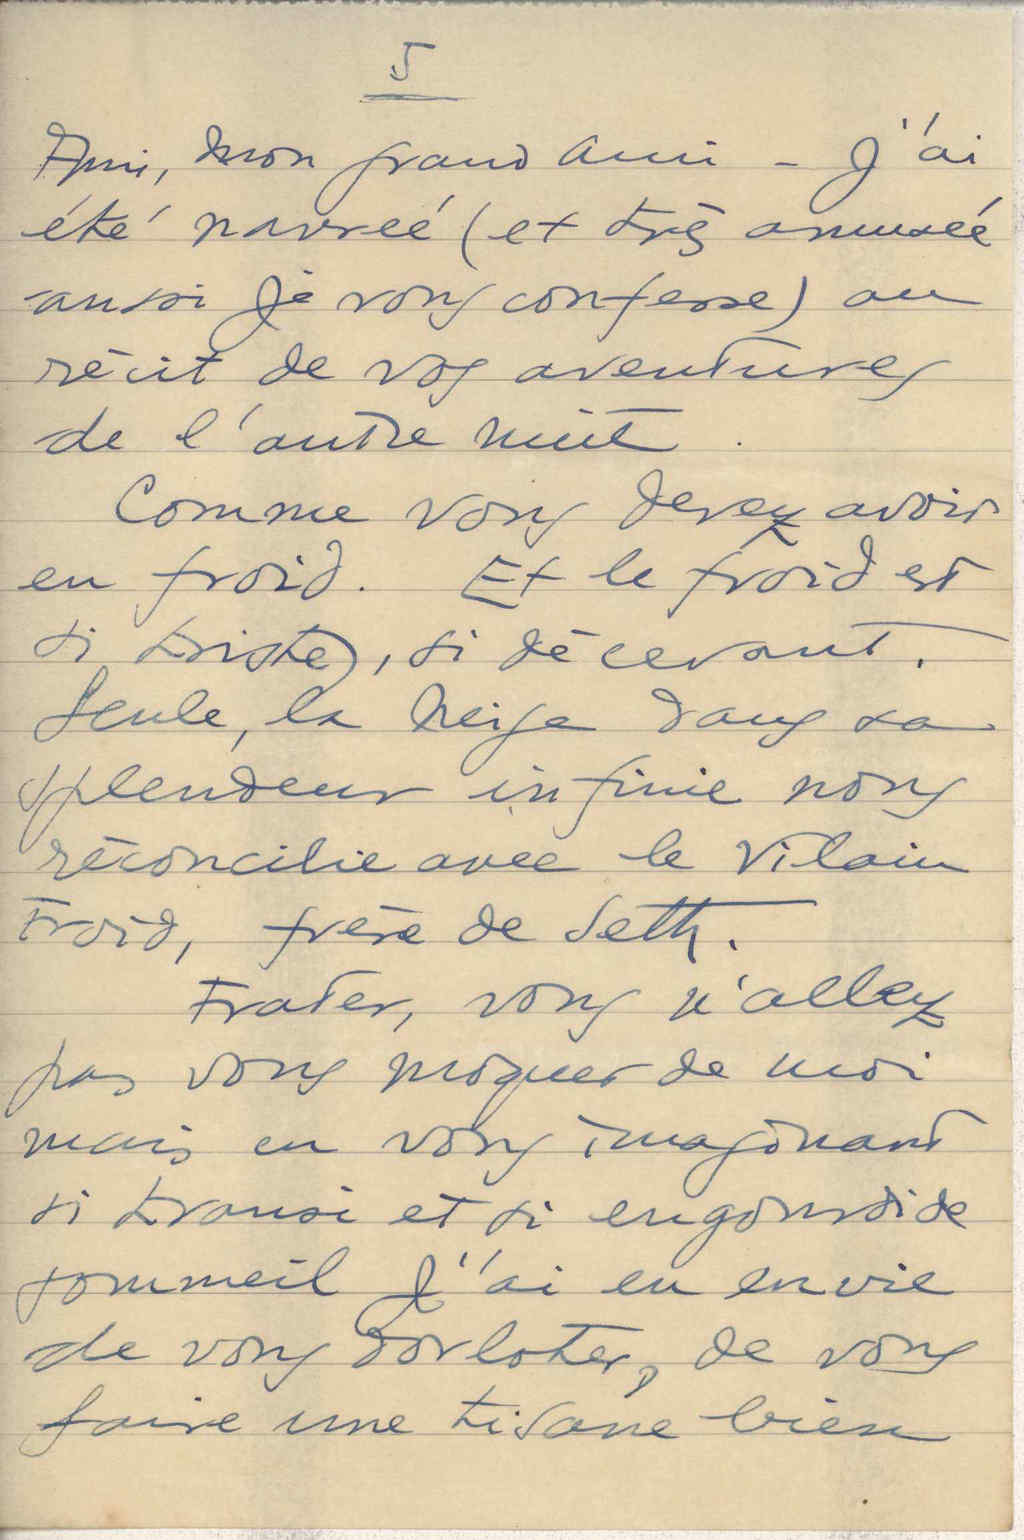 5
Ami, mon grand ami - j'ai
été navrée (et très amusée
aussi je vous confesse) au
récit de vos aventures
de l'autre nuit.
Comme vous devez avoir
eu froid. Et le froid est
si triste, si décevant.
Seule, la neige dans sa
splendeur infinie nous
réconcilie avec le vilain
Froid, frère de Seth.
Frater, vous n'allez
pas vous moquer de moi
mais en vous imaginant
si transi et si engourdi de
sommeil j'ai eu envie
de vous dorloter, de vous
faire une tisane bien